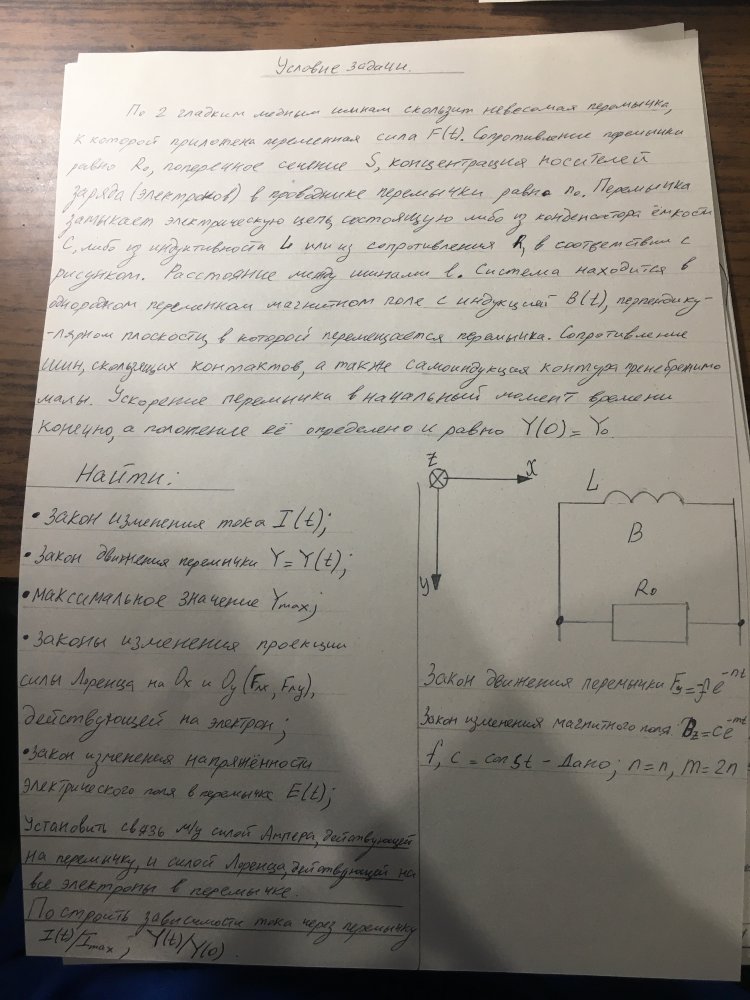 Условие задачи.
По 2 гладким медным шинам скользит невесомая перемычка,
к которой приложена переменная сила F(t). Сопротивление перемычки
равно R₀, поперечное сечение S, концентрация носителей
заряда (электронов) в проводнике перемычки равно n₀. Перемычка
замыкает электрическую цепь, состоящую либо из конденсатора ёмкости
C, либо из индуктивности L или из сопротивления R, в соответствии с
рисунком. Расстояние между шинами l. Система находится в
однородном переменном магнитном поле с индукцией B(t), перпендику-
-лярном плоскости, в которой перемещается перемычка. Сопротивление
шин, скользящих контактов, а также самоиндукция контура пренебрежимо
малы. Ускорение перемычки в начальный момент времени
конечно, а положение её определено и равно Y(0) = Y₀
Найти:
• Закон изменения тока I(t);
• Закон движения перемычки Y = Y(t);
• максимальное значение Ymax;
• Законы изменения проекции
силы Лоренца на Ox и Oy (Fлx, Fлy),
действующей на электрон;
• Закон изменения напряжённости
электрического поля в перемычке E(t);
Установить связь м/у силой Ампера, действующей
на перемычку, и силой Лоренца, действующей на
все электроны в перемычке.
Построить зависимости тока через перемычку
I(t)/Imax; Y(t)/Y(0)
z
X
y
L
B
R₀
Закон движения перемычки Fy = -fe^-nt
Закон изменения магнитного поля: Bz = ce^-mt
f, c = const - дано; n = n, m = 2n